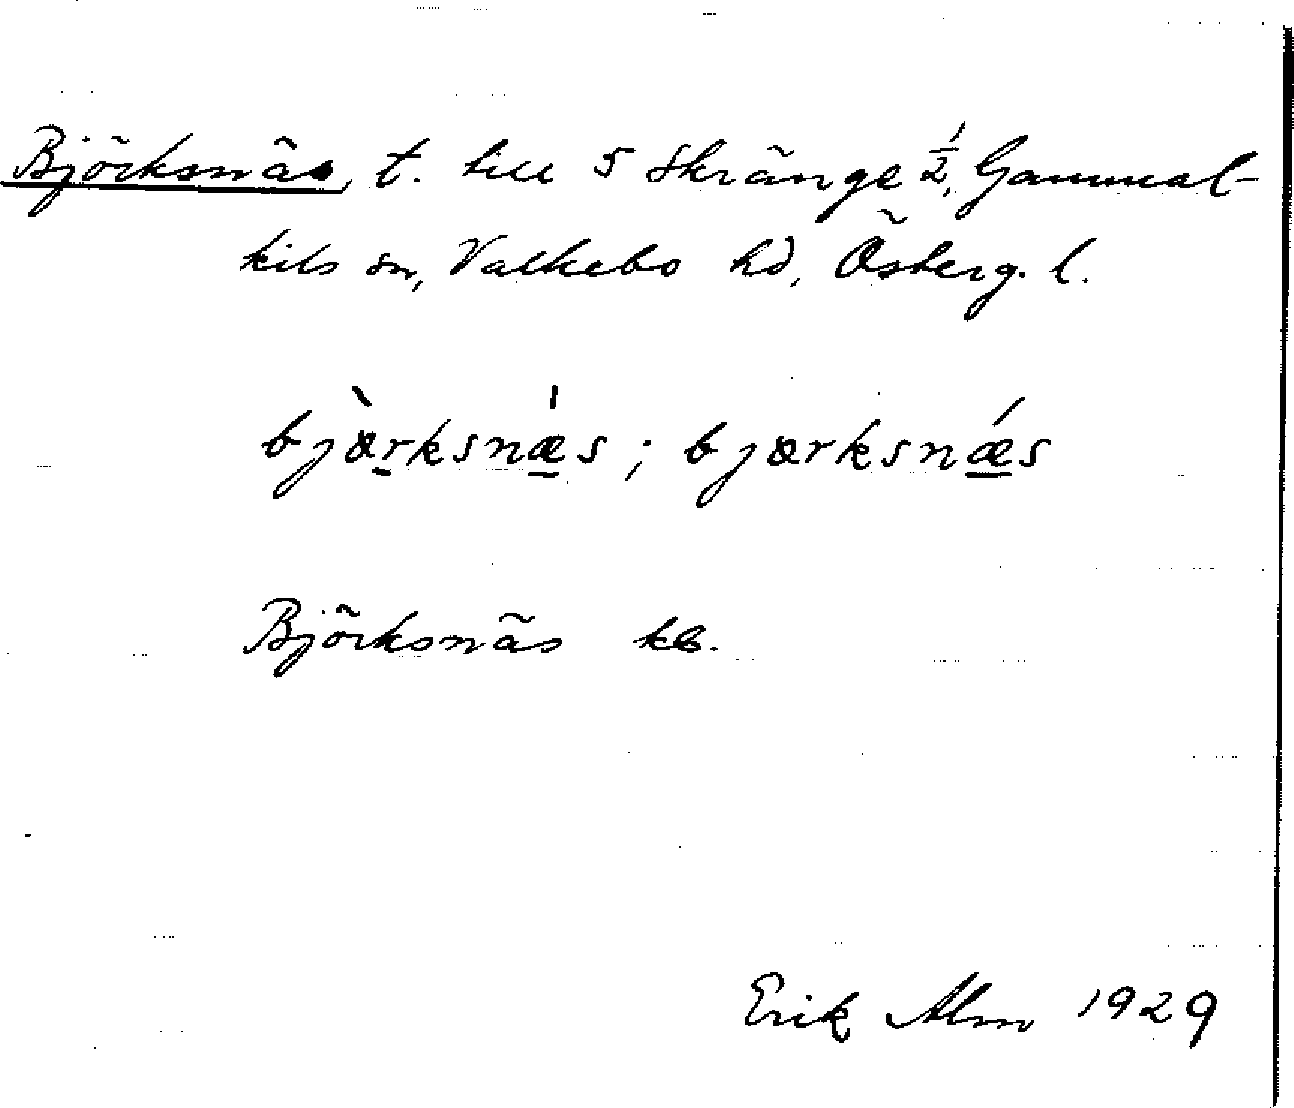 Björksnäs, t. till 5 Skränge 1/2, Gammal-
kils sn, Valkebo hd, Österg. l.
bjæ̀rksnǽs; bjærksnǽs
Björksnäs kb.
Erik Alm 1929